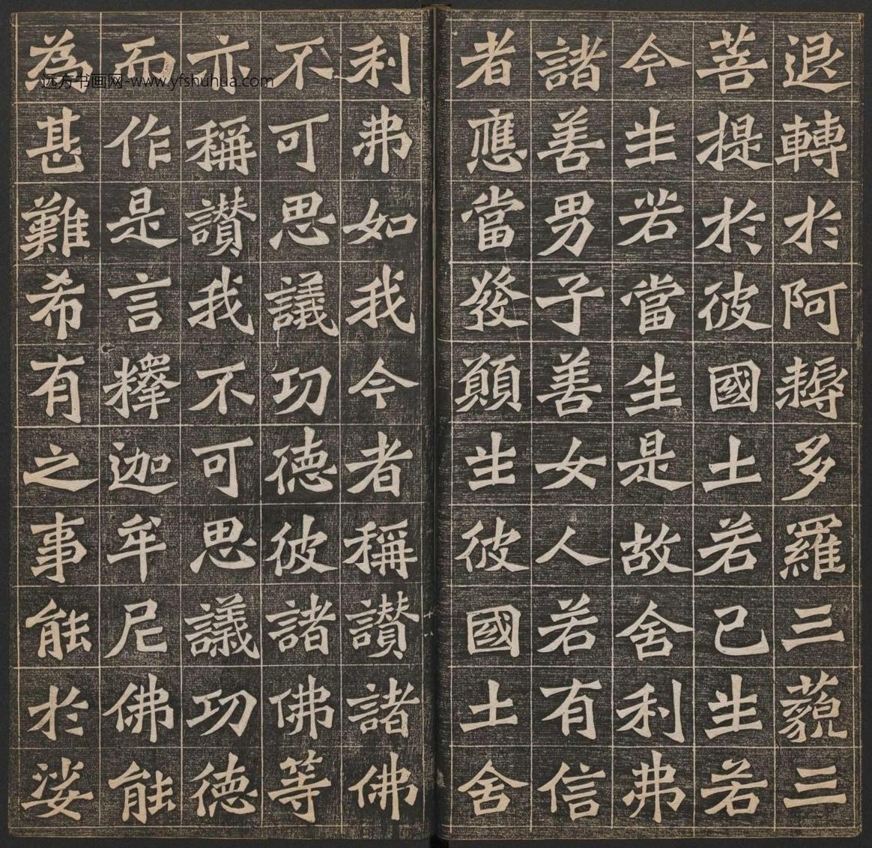 退轉於阿耨多羅三藐三
菩提於彼國土若已生若
今生若當生是故舍利弗
諸善男子善女人若有信
者應當發願生彼國土舍
利弗如我今者稱讚諸佛
不可思議功德彼諸佛等
亦稱讚我不可思議功德
而作是言釋迦牟尼佛能
為甚難希有之事能於娑
远方书画网-www.yfshuhua.com